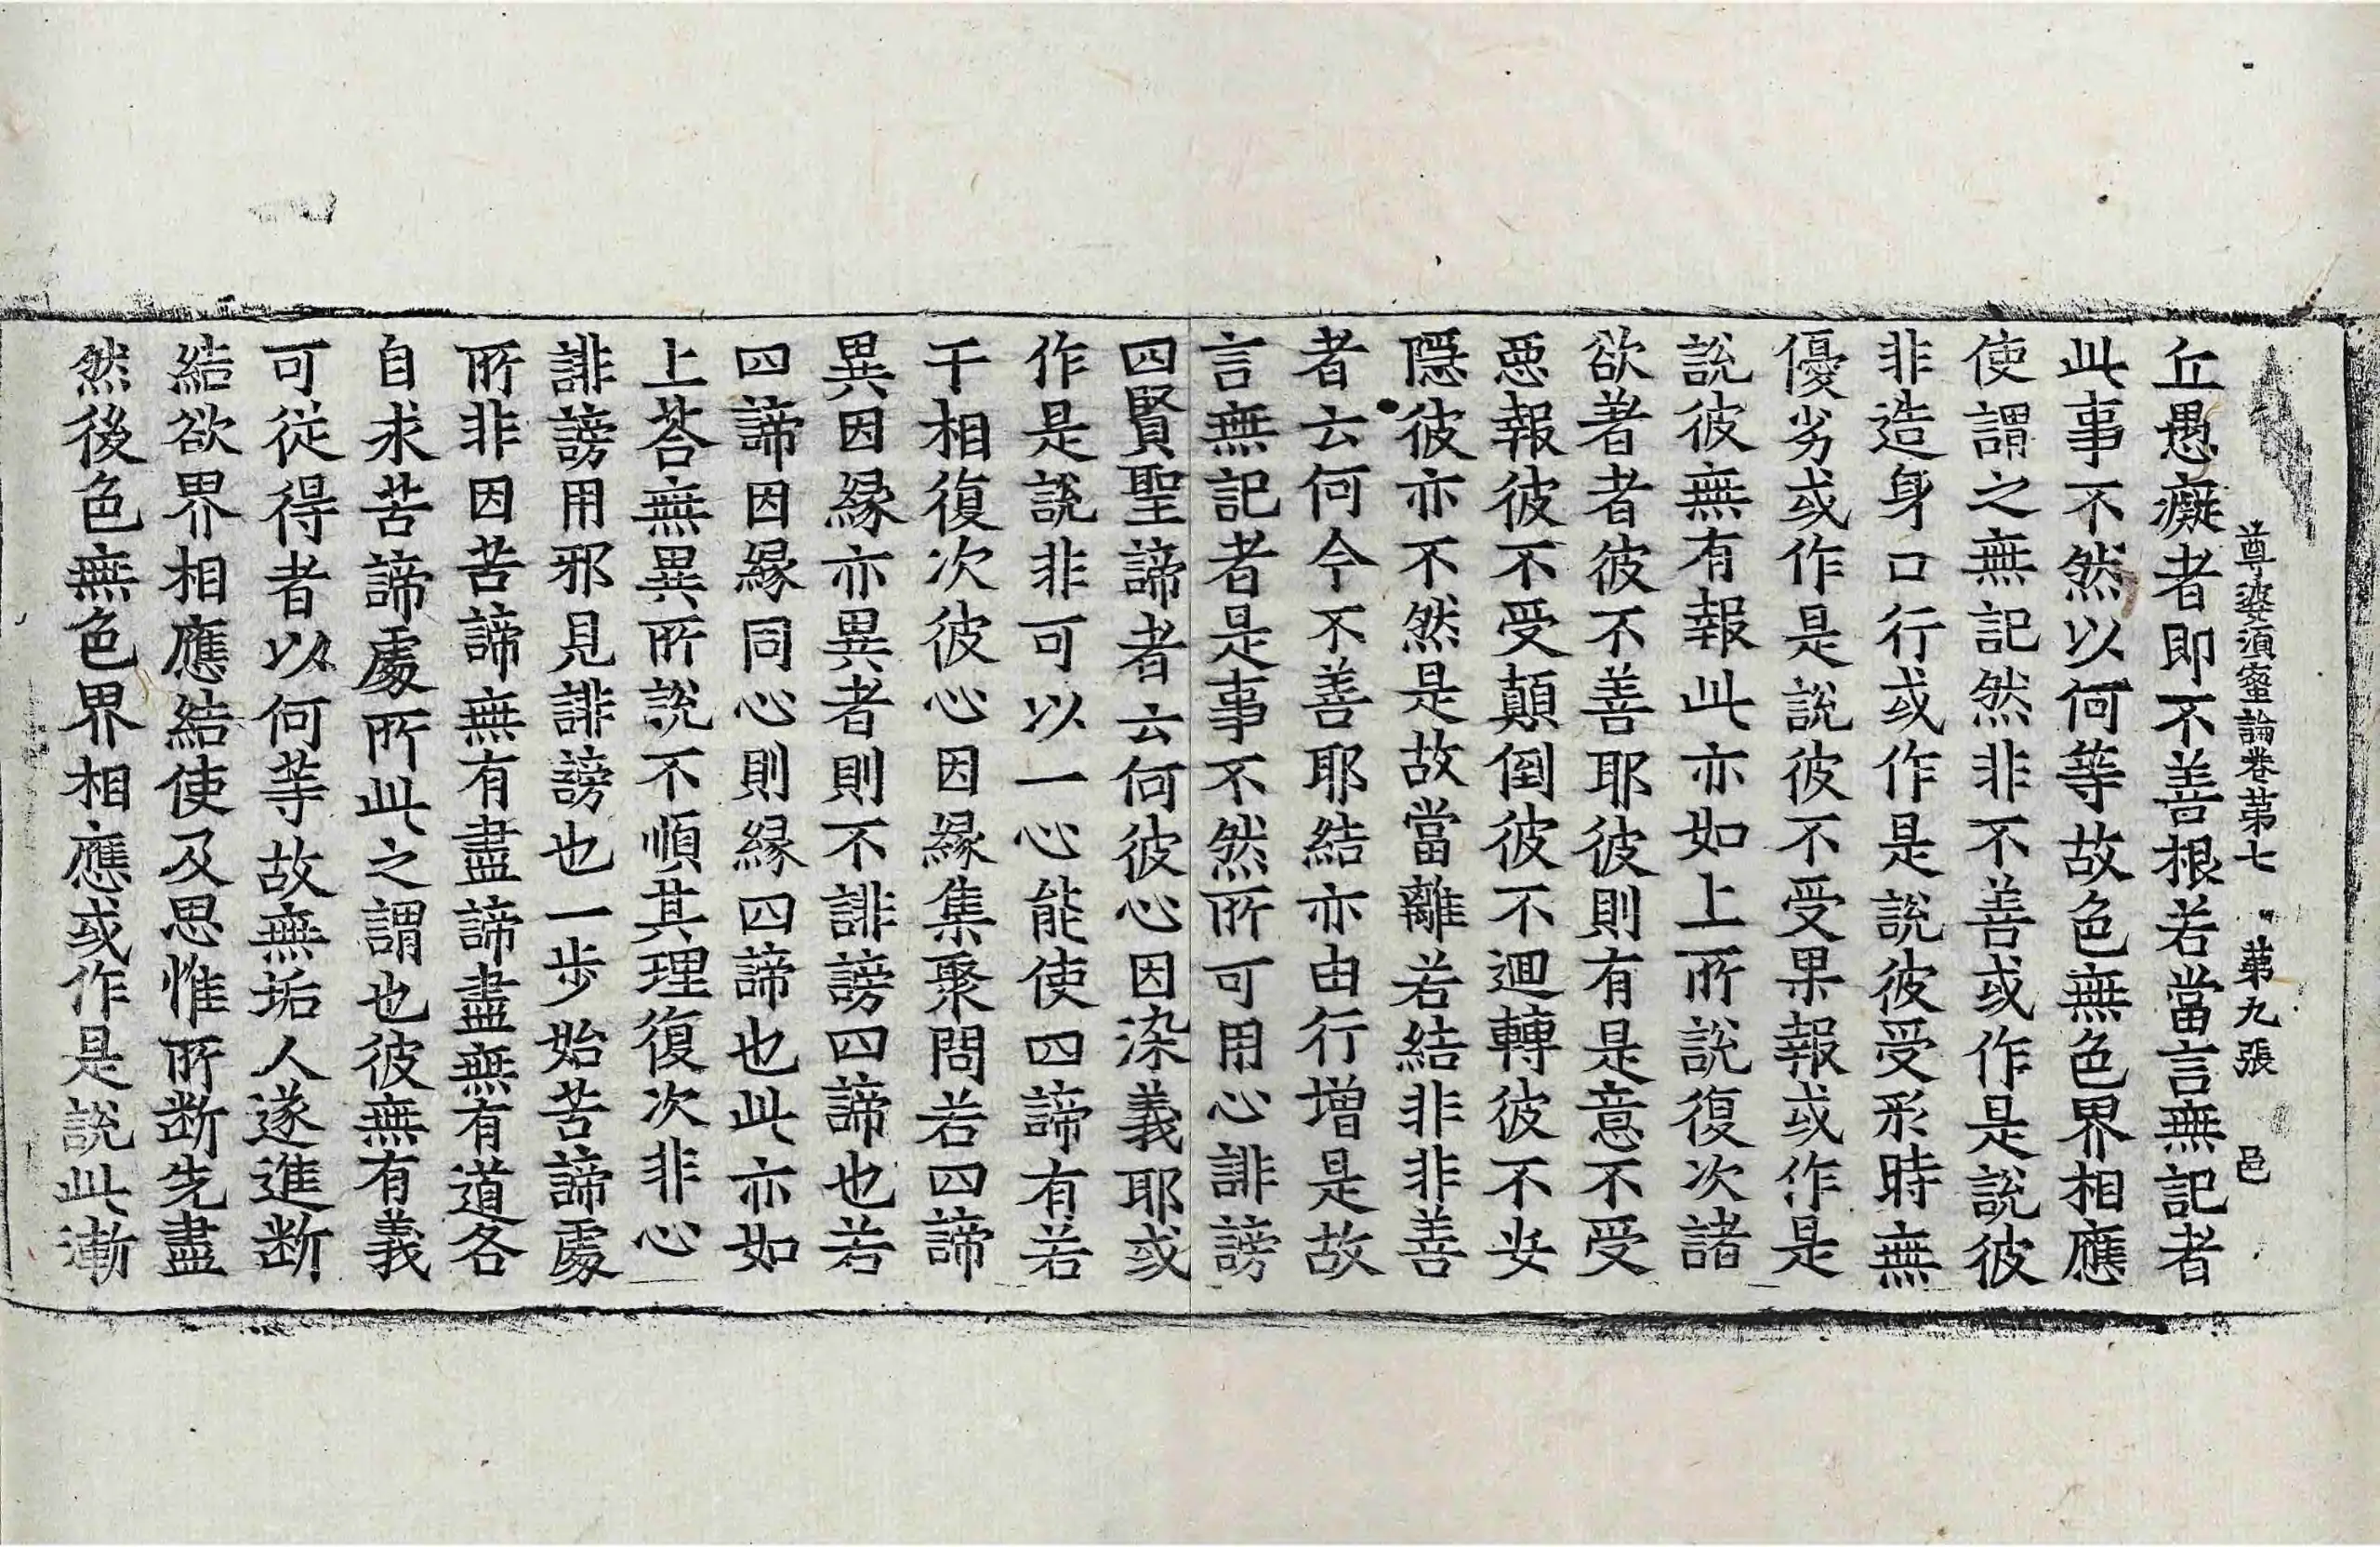 尊婆須蜜論卷苐七　苐九張　邑
丘愚癡者即不善根若當言無記者
此事不然以何等故色無色界相應
使謂之無記然非不善或作是說彼
非造身口行或作是說彼受形時無
優劣或作是說彼不受果報或作是
說彼無有報此亦如上所說復次諸
欲著者彼不善耶彼則有是意不受
惡報彼不受顛倒彼不迴轉彼不妄
隱彼亦不然是故當離若結非非善
者云何今不善耶結亦由行增是故
言無記者是事不然所可用心誹謗
四賢聖諦者云何彼心因染義耶或
作是說非可以一心能使四諦有若
干相復次彼心因縁集聚問若四諦
異因縁亦異者則不誹謗四諦也若
四諦因縁同心則縁四諦也此亦如
上荅無異所說不順其理復次非心
誹謗用邪見誹謗也一步始苦諦處
所非因苦諦無有盡諦盡無有道各
自求苦諦處所此之謂也彼無有義
可從得者以何等故無垢人遂進断
結欲界相應結使及思惟所断先盡
然後色無色界相應或作是說此漸